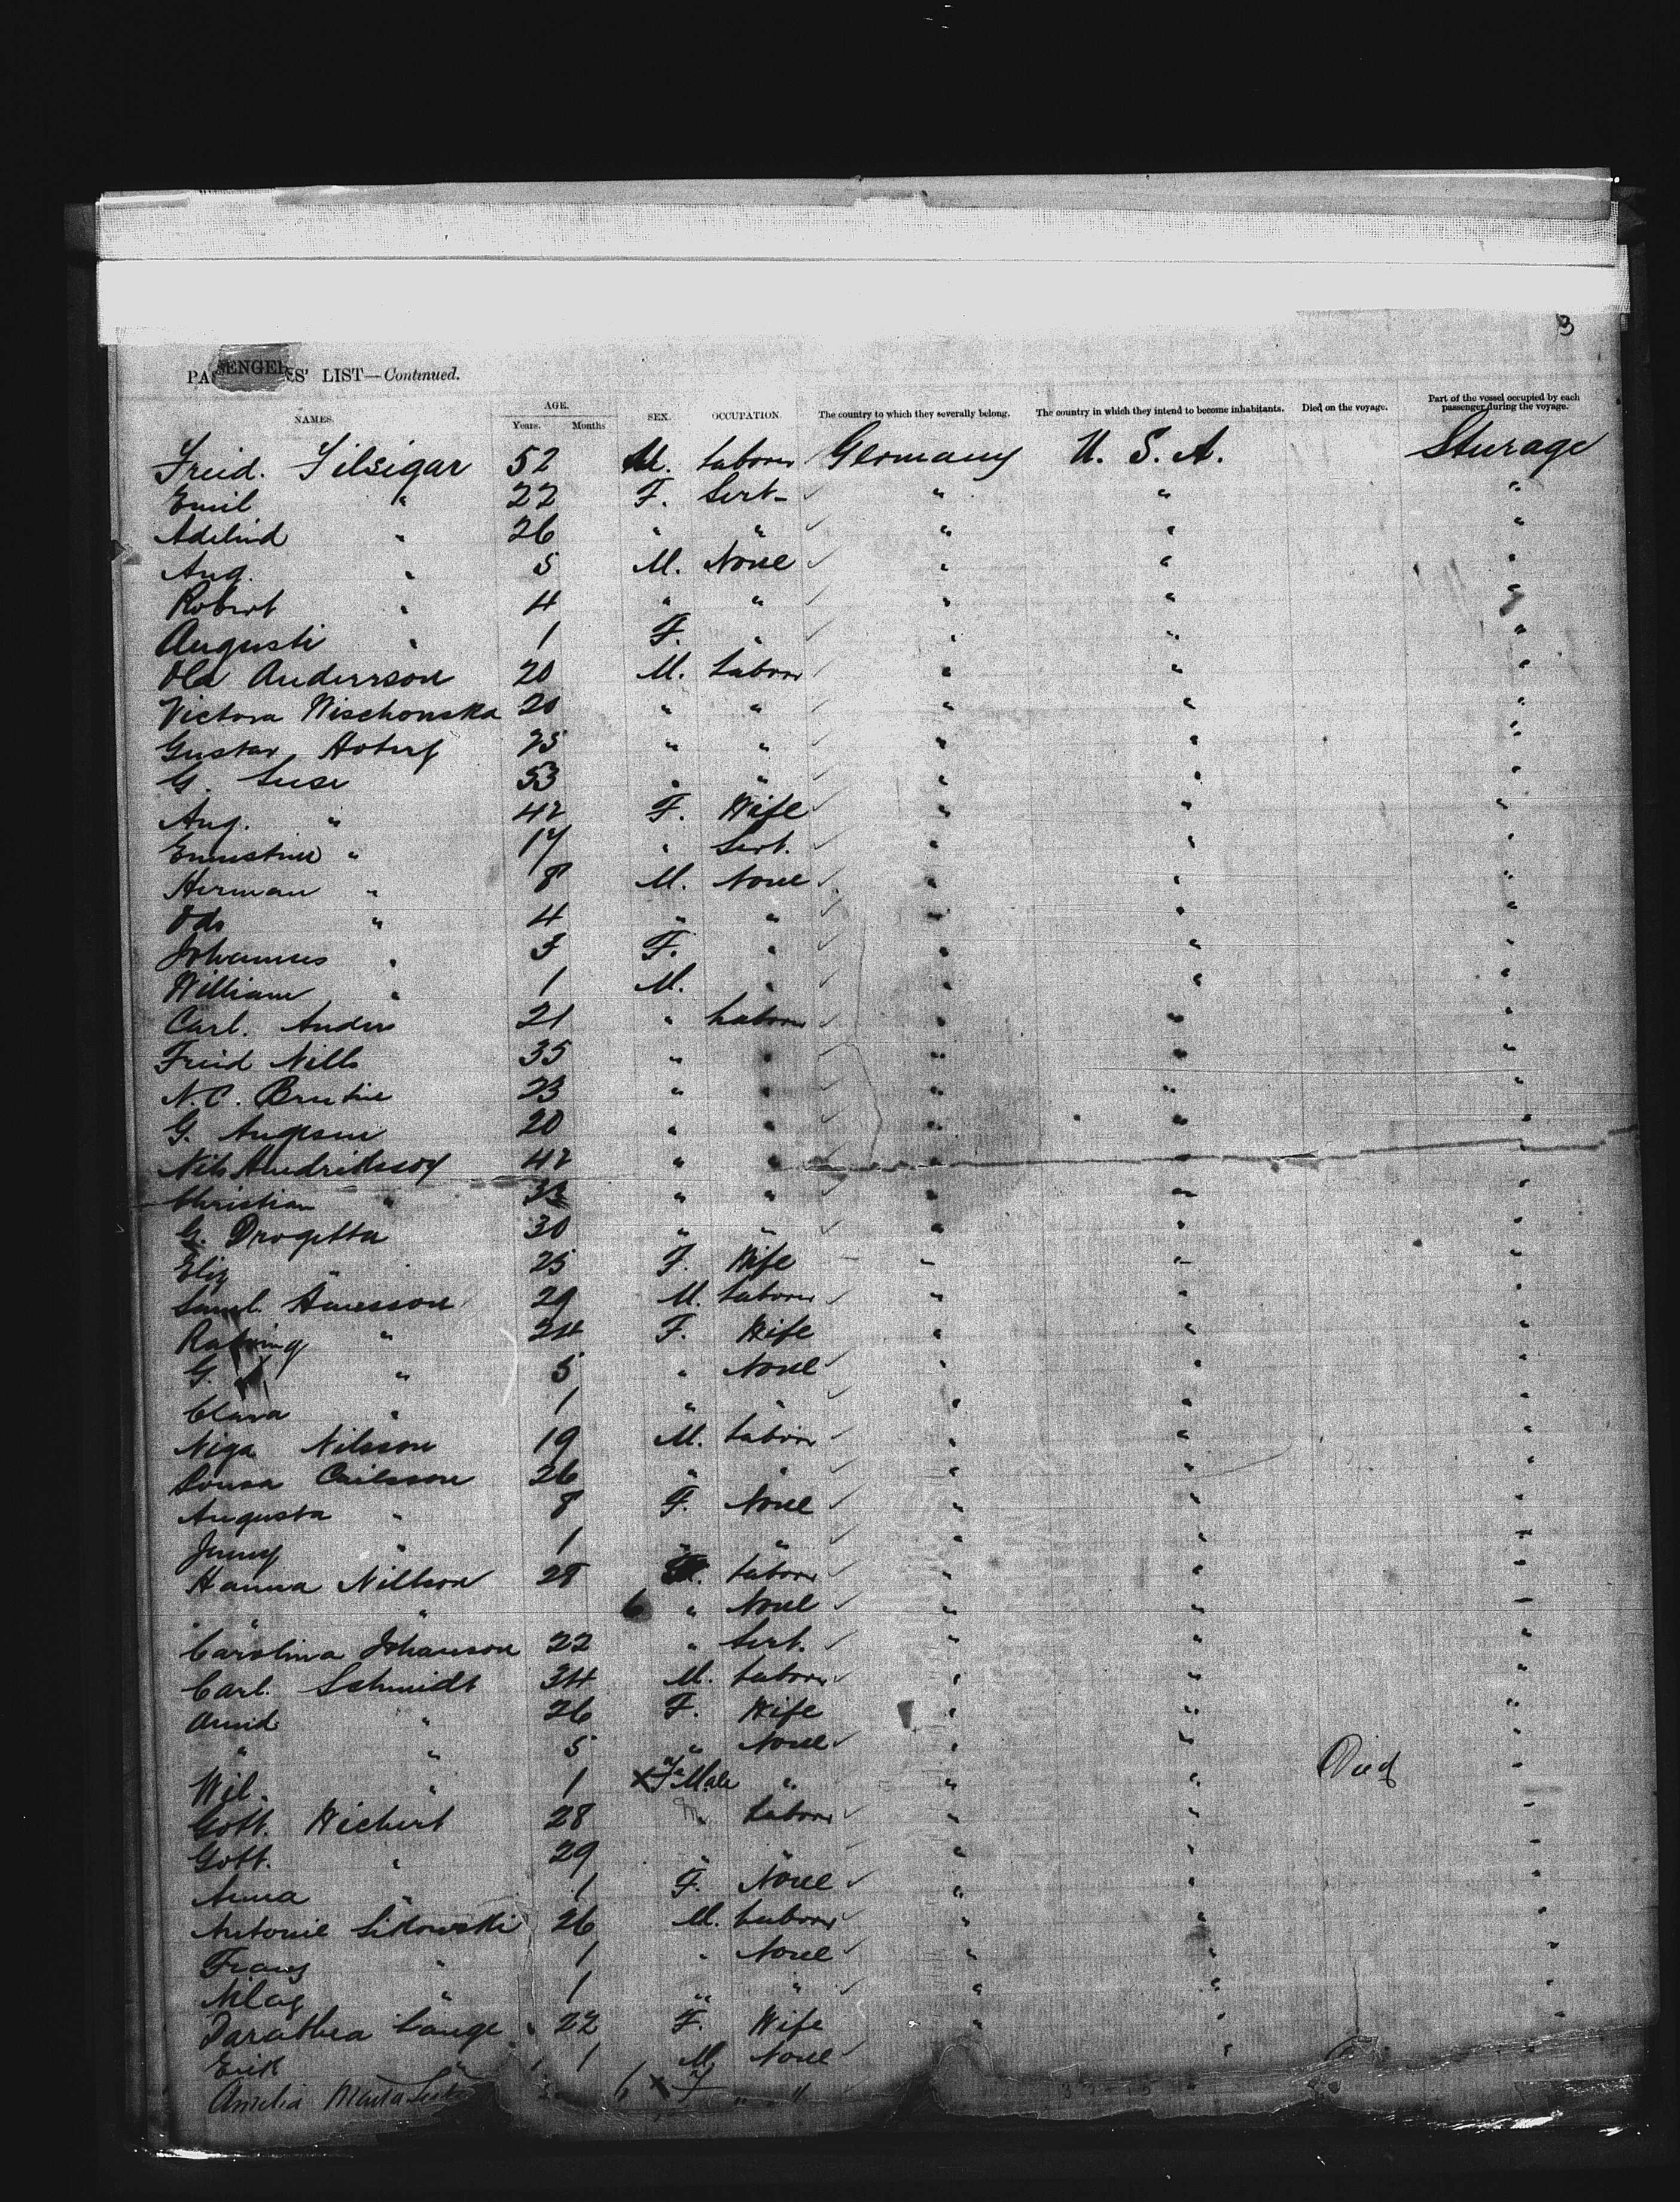 3
PASSENGERS' LIST—Continued.
NAMES. AGE. Years. Months SEX. OCCUPATION. The country to which they severally belong. The country in which they intend to become inhabitants. Died on the voyage. Part of the vessel occupied by each passenger during the voyage.
Freid. 52 M. Laborer Germany U. S. A. Sturage
Emil " 22 F. Sert- " " "
Adelind " 26 " " " " "
Aug. " 5 M. None " " "
Robert " 4 " " " " "
Augusti " 1 F. " " " "
Ola Anderrson 20 M. Labor " " "
Victora Wischonska 20 " " " " "
Gustav 25 " " " " "
G. Luse 53 " " " " "
Aug. " 42 F. Wife " " "
" 17 " Sert. " " "
Herman " 8 M. None " " "
" 4 " " " " "
Johannes " 3 F. " " " "
William " 1 M. " " " "
Carl. Anders 21 " Labor " " "
Freid Nills 35 " " " " "
N. C. 23 " " " " "
G. 20 " " " " "
Nils 42 " " " " "
Christian " " " " " "
G. Drogetta 30 " " " " "
Eliz " 25 F. Wife " " "
Saml. 29 M. Labor " " "
" 24 F. Wife " " "
G. " 5 " None " " "
Clara " 1 " " " " "
Niga Nilsson 19 M. Labor " " "
Lousa Carlsson 26 " " " " "
Augusta " 8 F. None " " "
Jenny " 1 " " " " "
Hanna Nillson 28 F. Labor " " "
" " 6 " None " " "
Carolina Johanson 22 " Sert. " " "
Carl. Schmidt 34 M. Labor " " "
" 26 F. Wife " " "
" " 5 " None " " "
Wil. " 1 Male " " " Died "
Gott. Wichert 28 " Labor " " "
Gott. " 29 " " " " "
Anna " 1 F. None " " "
Antonie 26 M. Labor " " "
Franz " 1 " None " " "
" 1 " " " " "
Darathea Lange 22 F. Wife " " "
Erik " 1 M. None "
Amelia Maria 6 F " "